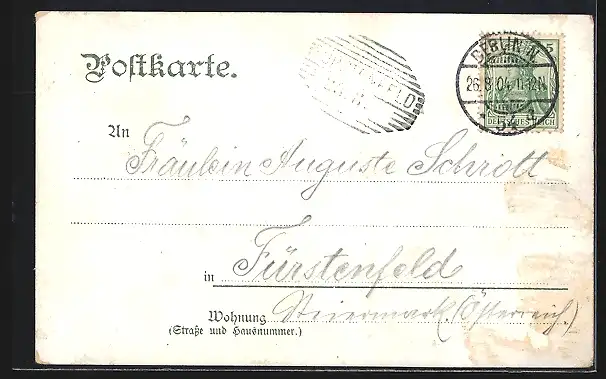 Postkarte.
BERLIN N.
26.8.04.11-12N
* 54
5
DEUTSCHES REICH
An
Fräulein Auguste Schrott
in
Fürstenfeld
Wohnung
(Straße und Hausnummer.)
Steiermark (Österreich.)